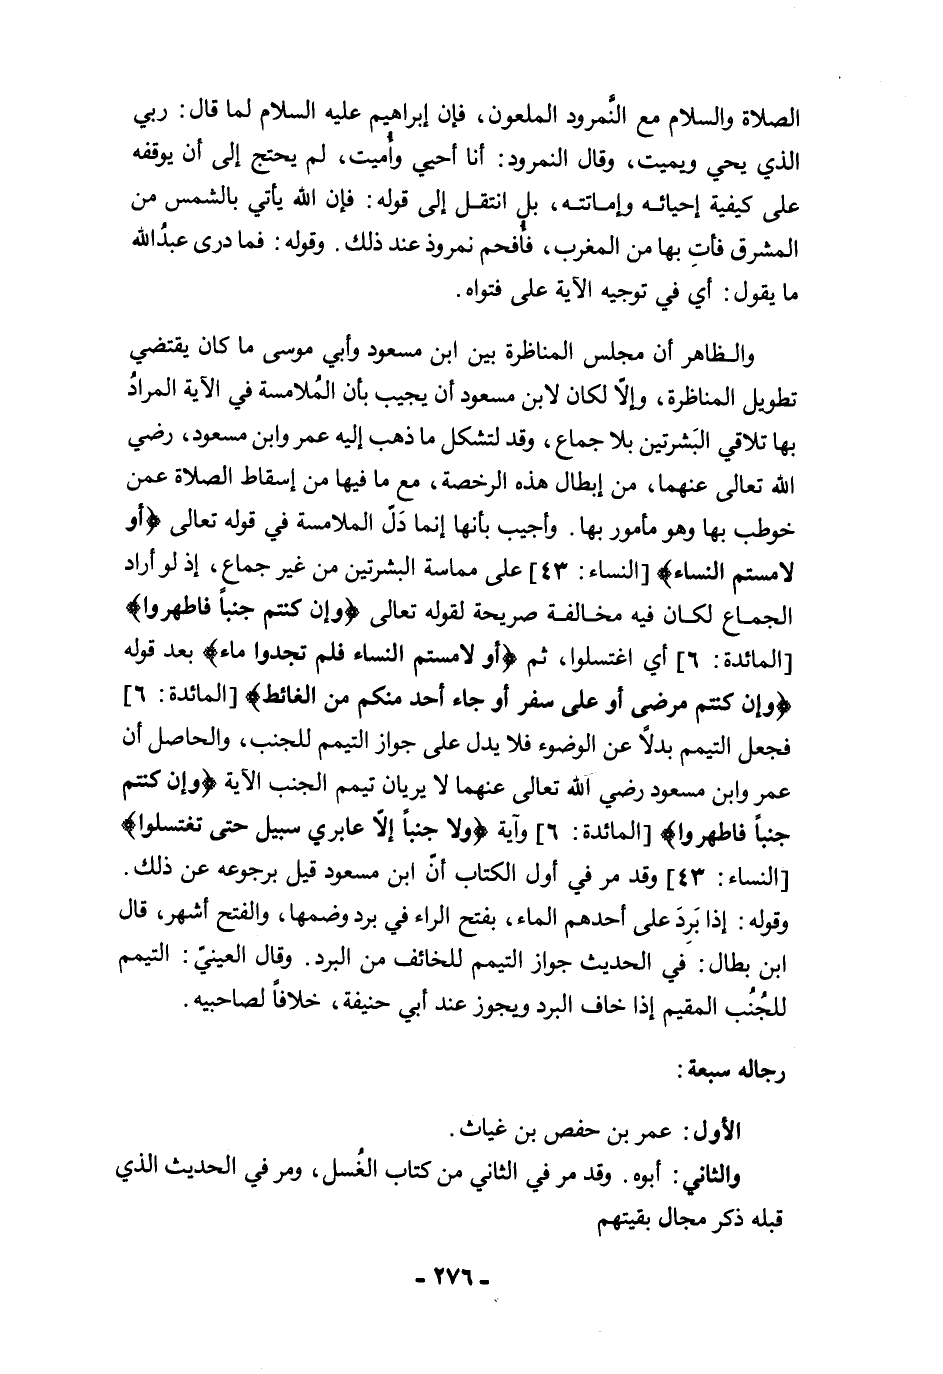 الصلاة والسلام مع النُّمرود الملعون، فإن إبراهيم عليه السلام لما قال: ربي
الذي يحي ويميت، وقال النمرود: أنا أحيي وأُميت، لم يحتج إلى أن يوقفه
على كيفية إحيائه وإماتته، بل انتقل إلى قوله: فإن الله يأتي بالشمس من
المشرق فأتِ بها من المغرب، فأُفحم نمروذ عند ذلك. وقوله: فما درى عبدُالله
ما يقول: أي في توجيه الآية على فتواه.
والظاهر أن مجلس المناظرة بين ابن مسعود وأبي موسى ما كان يقتضي
تطويل المناظرة، وإلّا لكان لابن مسعود أن يجيب بأن المُلامسة في الآية المرادُ
بها تلاقي البَشرتين بلا جماع، وقد لتشكل ما ذهب إليه عمر وابن مسعود، رضي
الله تعالى عنهما، من إبطال هذه الرخصة، مع ما فيها من إسقاط الصلاة عمن
خوطب بها وهو مأمور بها. وأجيب بأنها إنما دَلّ الملامسة في قوله تعالى ﴿أو
لامستم النساء﴾ [النساء: ٤٣] على مماسة البشرتين من غير جماع، إذ لو أراد
الجماع لكان فيه مخالفة صريحة لقوله تعالى ﴿وإن كنتم جنباً فاطهروا﴾
[المائدة: ٦] أي اغتسلوا، ثم ﴿أو لامستم النساء فلم تجدوا ماء﴾ بعد قوله
﴿وإن كنتم مرضى أو على سفر أو جاء أحد منكم من الغائط﴾ [المائدة: ٦]
فجعل التيمم بدلاً عن الوضوء فلا يدل على جواز التيمم للجنب، والحاصل أن
عمر وابن مسعود رضي الله تعالى عنهما لا يريان تيمم الجنب الآية ﴿وإن كنتم
جنباً فاطهروا﴾ [المائدة: ٦] وآية ﴿ولا جنباً إلّا عابري سبيل حتى تغتسلوا﴾
[النساء: ٤٣] وقد مر في أول الكتاب أنّ ابن مسعود قيل برجوعه عن ذلك.
وقوله: إذا بَرِدَ على أحدهم الماء، بفتح الراء في برد وضمها، والفتح أشهر، قال
ابن بطال: في الحديث جواز التيمم للخائف من البرد. وقال العينيّ: التيمم
للجُنُب المقيم إذا خاف البرد ويجوز عند أبي حنيفة، خلافاً لصاحبيه.
رجاله سبعة:
الأول: عمر بن حفص بن غياث.
والثاني: أبوه. وقد مر في الثاني من كتاب الغُسل، ومر في الحديث الذي
قبله ذكر مجال بقيتهم
- ٢٧٦ -